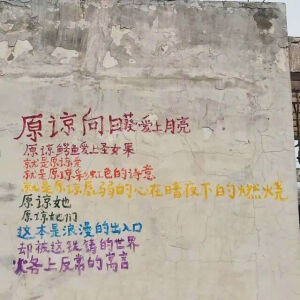 原谅向日葵爱上月亮
原谅鳄鱼爱上圣女果
就是原谅爱
就是原谅彩虹色的诗意
就是原谅孱弱的心在暗夜下的燃烧
原谅她
原谅她们
这本是浪漫的出入口
却被这 铸的世界
火各上反常的寓言